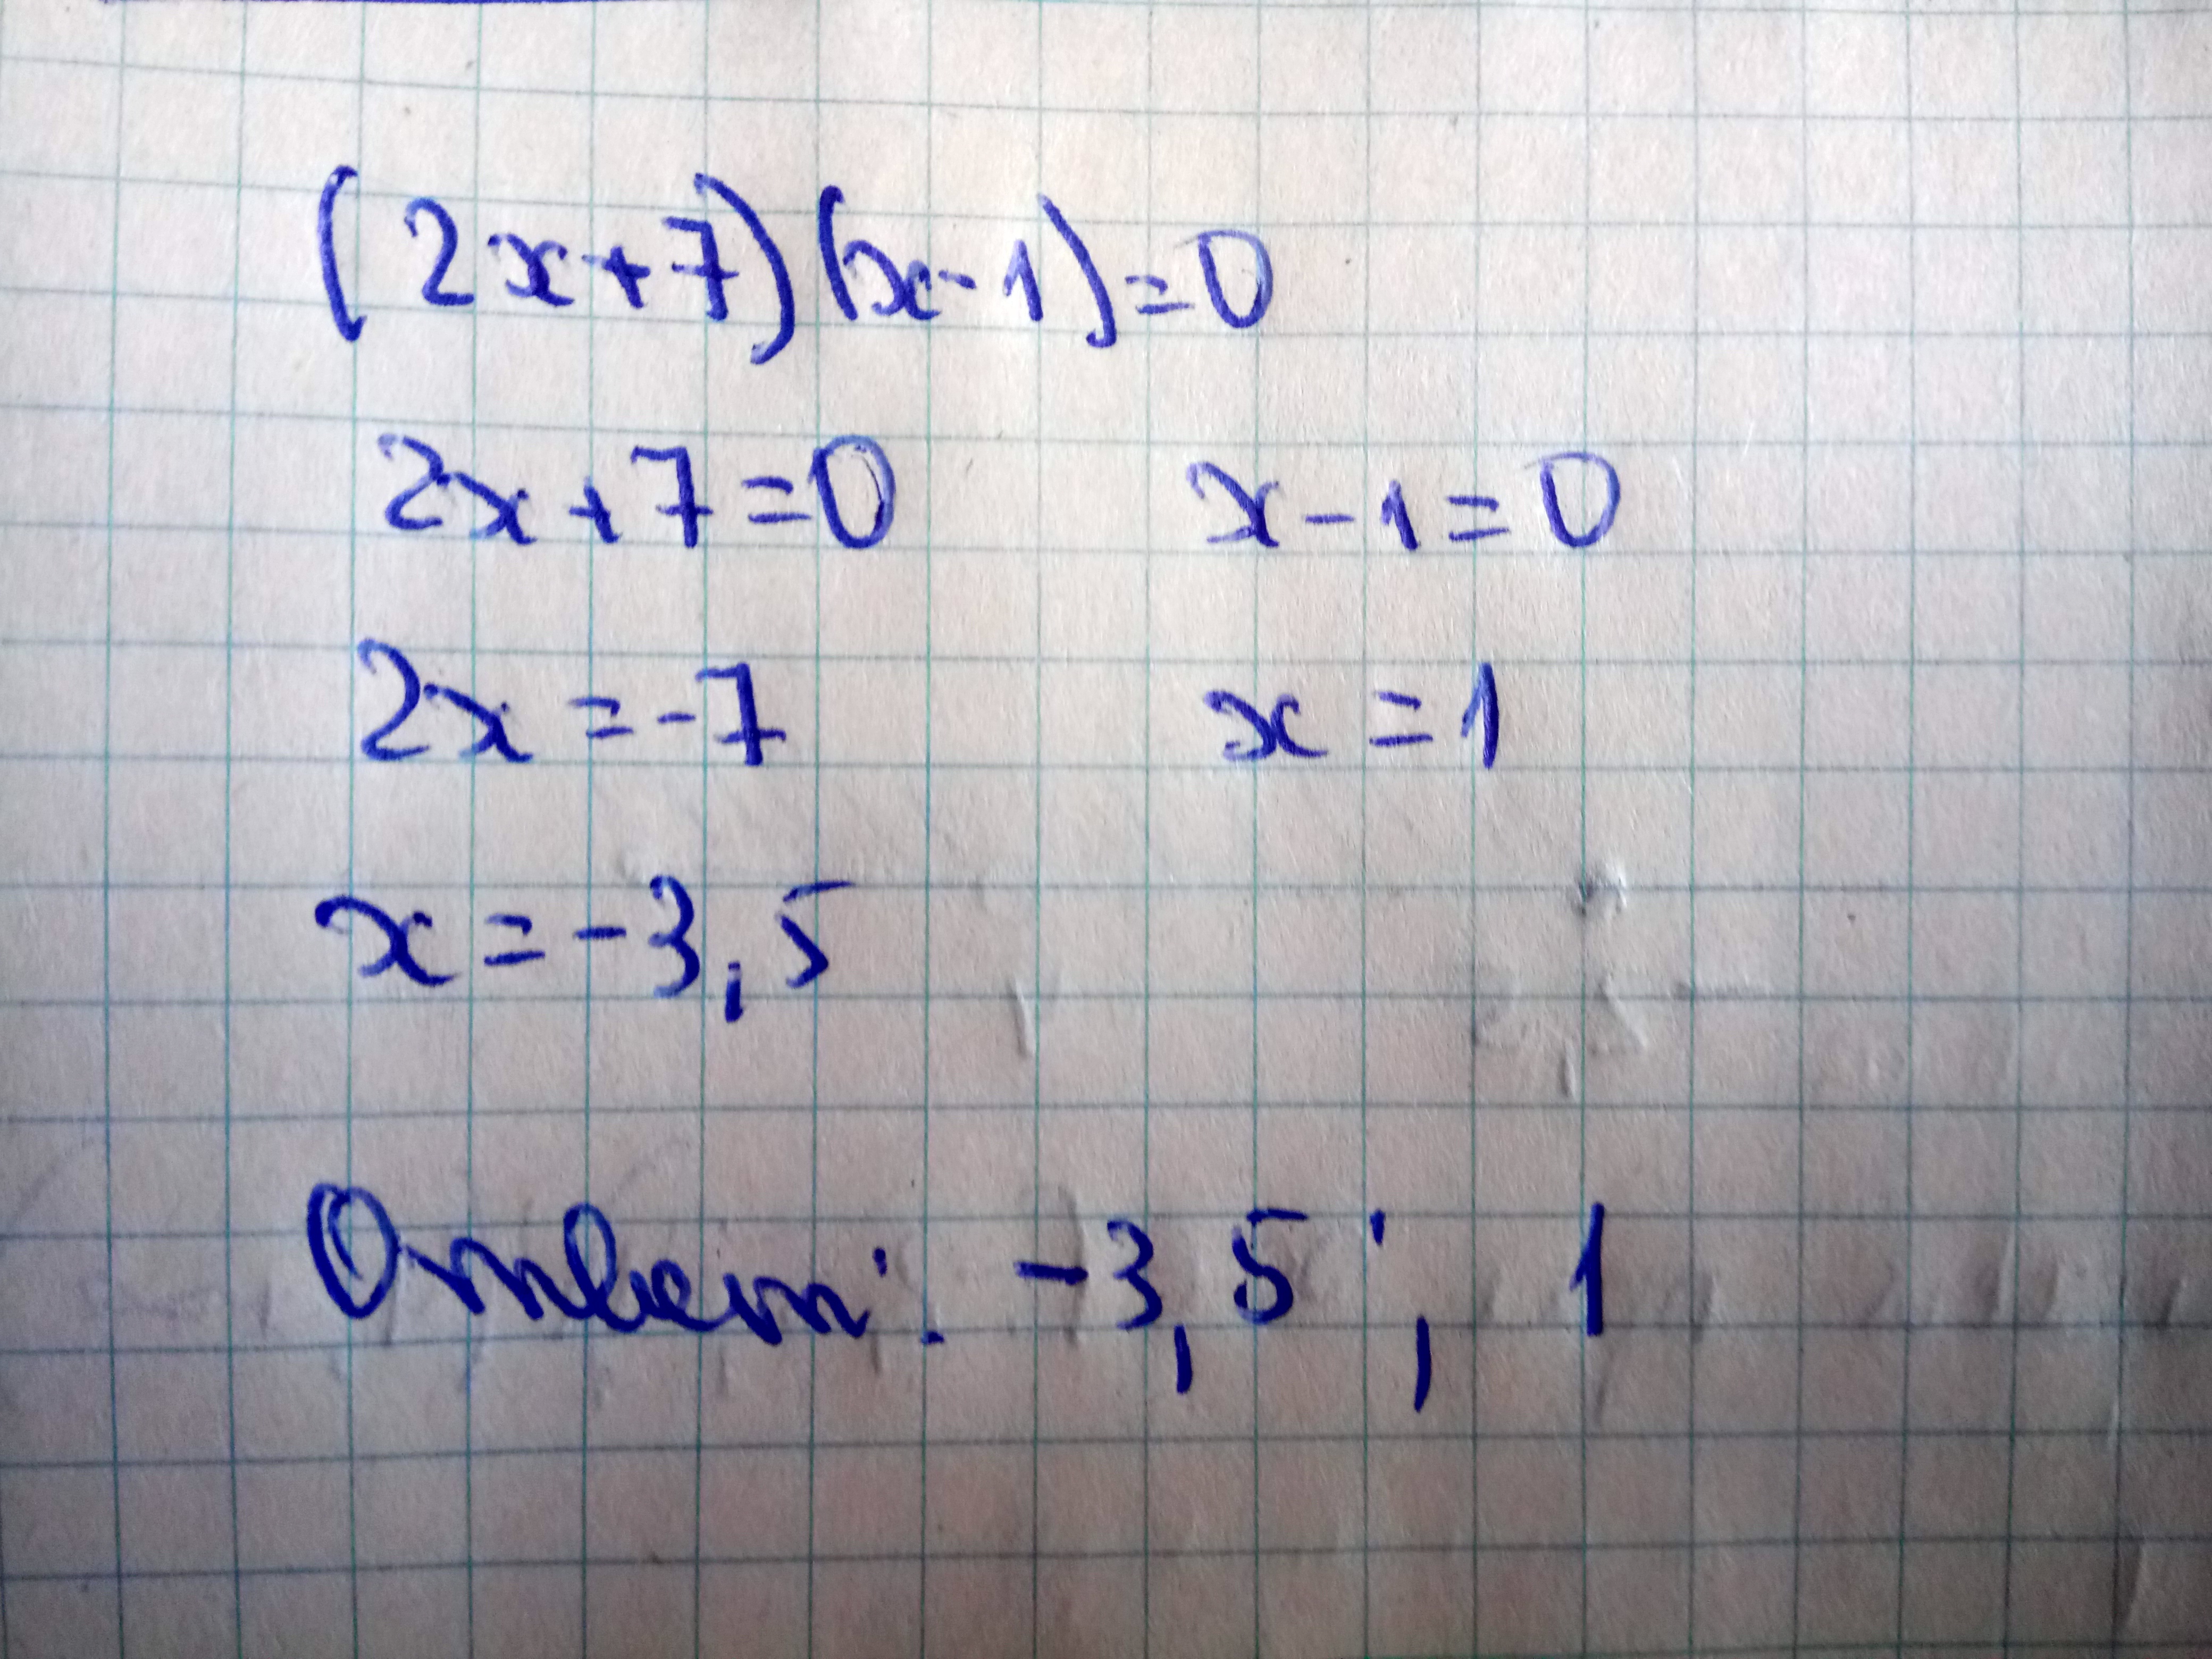 (2x+7)(x-1)=0
2x+7=0 x-1=0
2x=-7 x=1
x=-3,5
Ответ: -3,5; 1